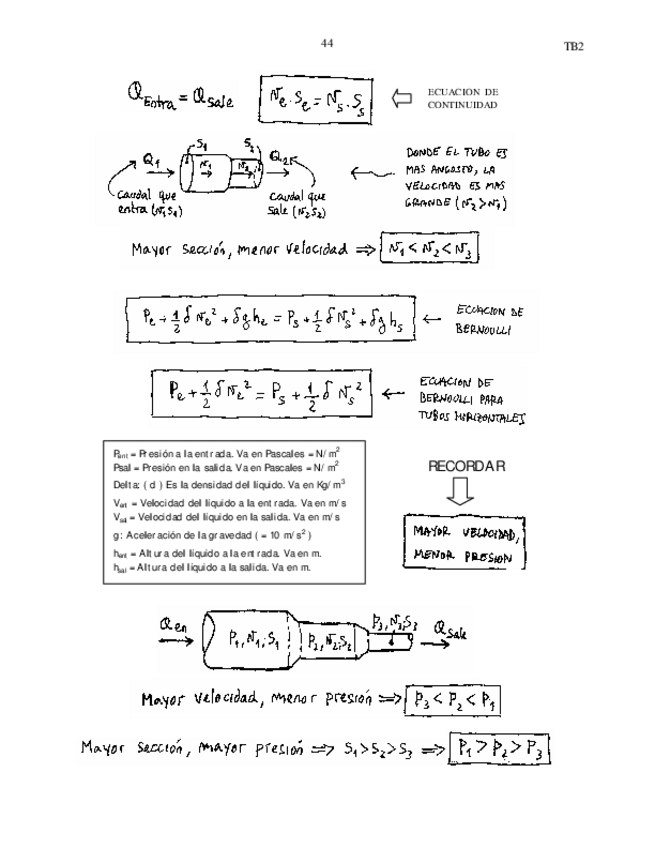 44
TB2
Q Entra = Q Sale
v_e . S_e = v_s . S_s
ECUACION DE
CONTINUIDAD
S_1
S_2
Q_1
v_1
v_2
Q_2
Caudal que
entra (v_1 S_1)
Caudal que
Sale (v_2 S_2)
DONDE EL TUBO ES
MAS ANGOSTO, LA
VELOCIDAD ES MAS
GRANDE (v_2 > v_1)
Mayor sección, menor velocidad ⇒ v_1 < v_2 < v_3
P_e + 1/2 δ v_e² + δ g h_e = P_s + 1/2 δ v_s² + δ g h_s
ECUACION DE
BERNOULLI
P_e + 1/2 δ v_e² = P_s + 1/2 δ v_s²
ECUACION DE
BERNOULLI PARA
TUBOS HORIZONTALES
P_ent = Presión a la entrada. Va en Pascales = N/m²
Psal = Presión en la salida. Va en Pascales = N/m²
Delta: ( d ) Es la densidad del líquido. Va en Kg/m³
V_ent = Velocidad del líquido a la entrada. Va en m/s
V_sal = Velocidad del líquido en la salida. Va en m/s
g: Aceleración de la gravedad ( = 10 m/s² )
h_ent = Altura del líquido a la entrada. Va en m.
h_sal = Altura del líquido a la salida. Va en m.
RECORDAR
MAYOR VELOCIDAD,
MENOR PRESION
Q en
P_1, v_1, S_1
P_2, v_2, S_2
P_3, v_3, S_3
Q Sale
Mayor velocidad, menor presión ⇒ P_3 < P_2 < P_1
Mayor sección, mayor presión ⇒ S_1 > S_2 > S_3 ⇒ P_1 > P_2 > P_3